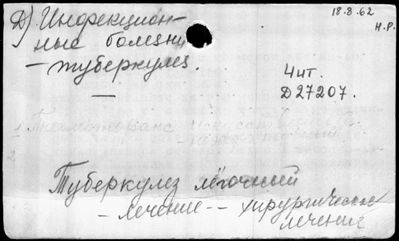 Д) Инфекцион-
ные болезни
- туберкулез.
18.8.62
Н.Р.
Чит.
Д27207.
Туберкулез лёгочный
- лечение -- хирургическое
лечение